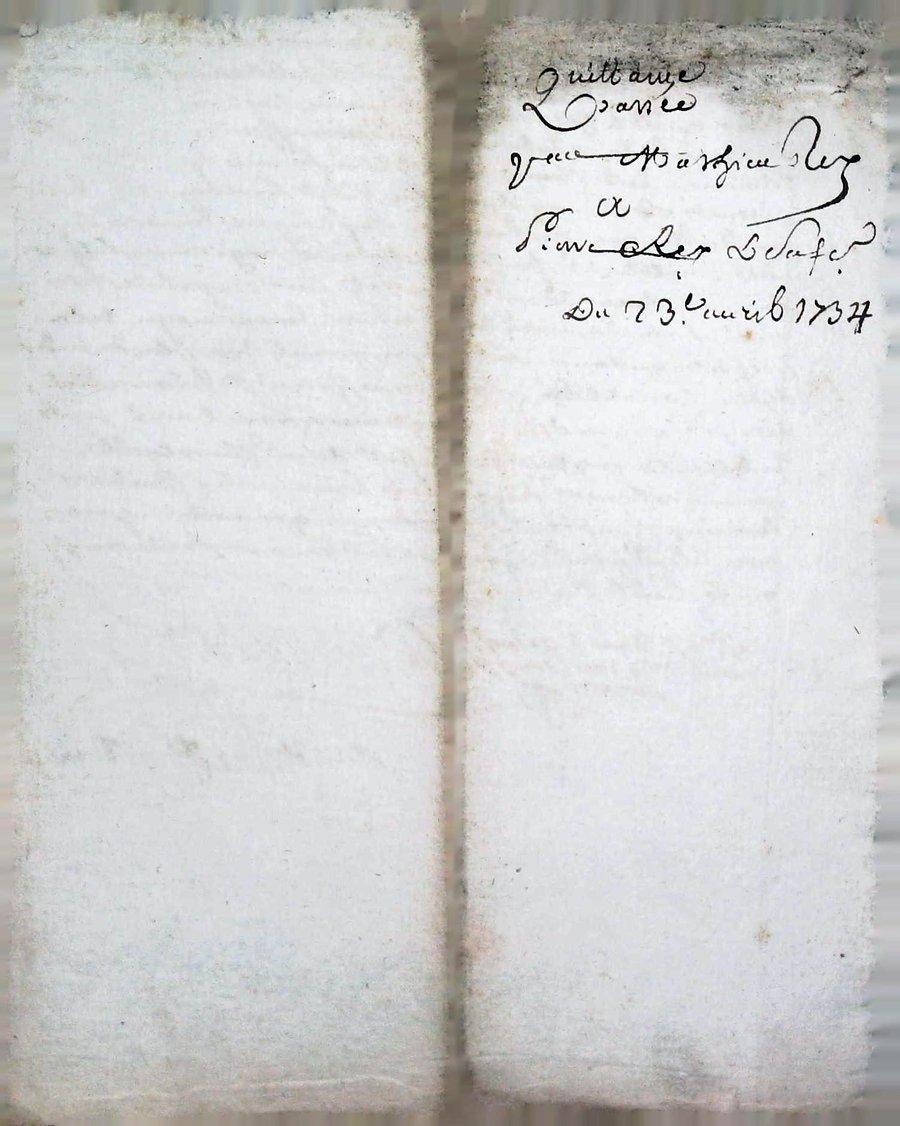 Quittance
passée
par Mathieu Rey
a
Pierre Rey
Du 23.e auril 1734